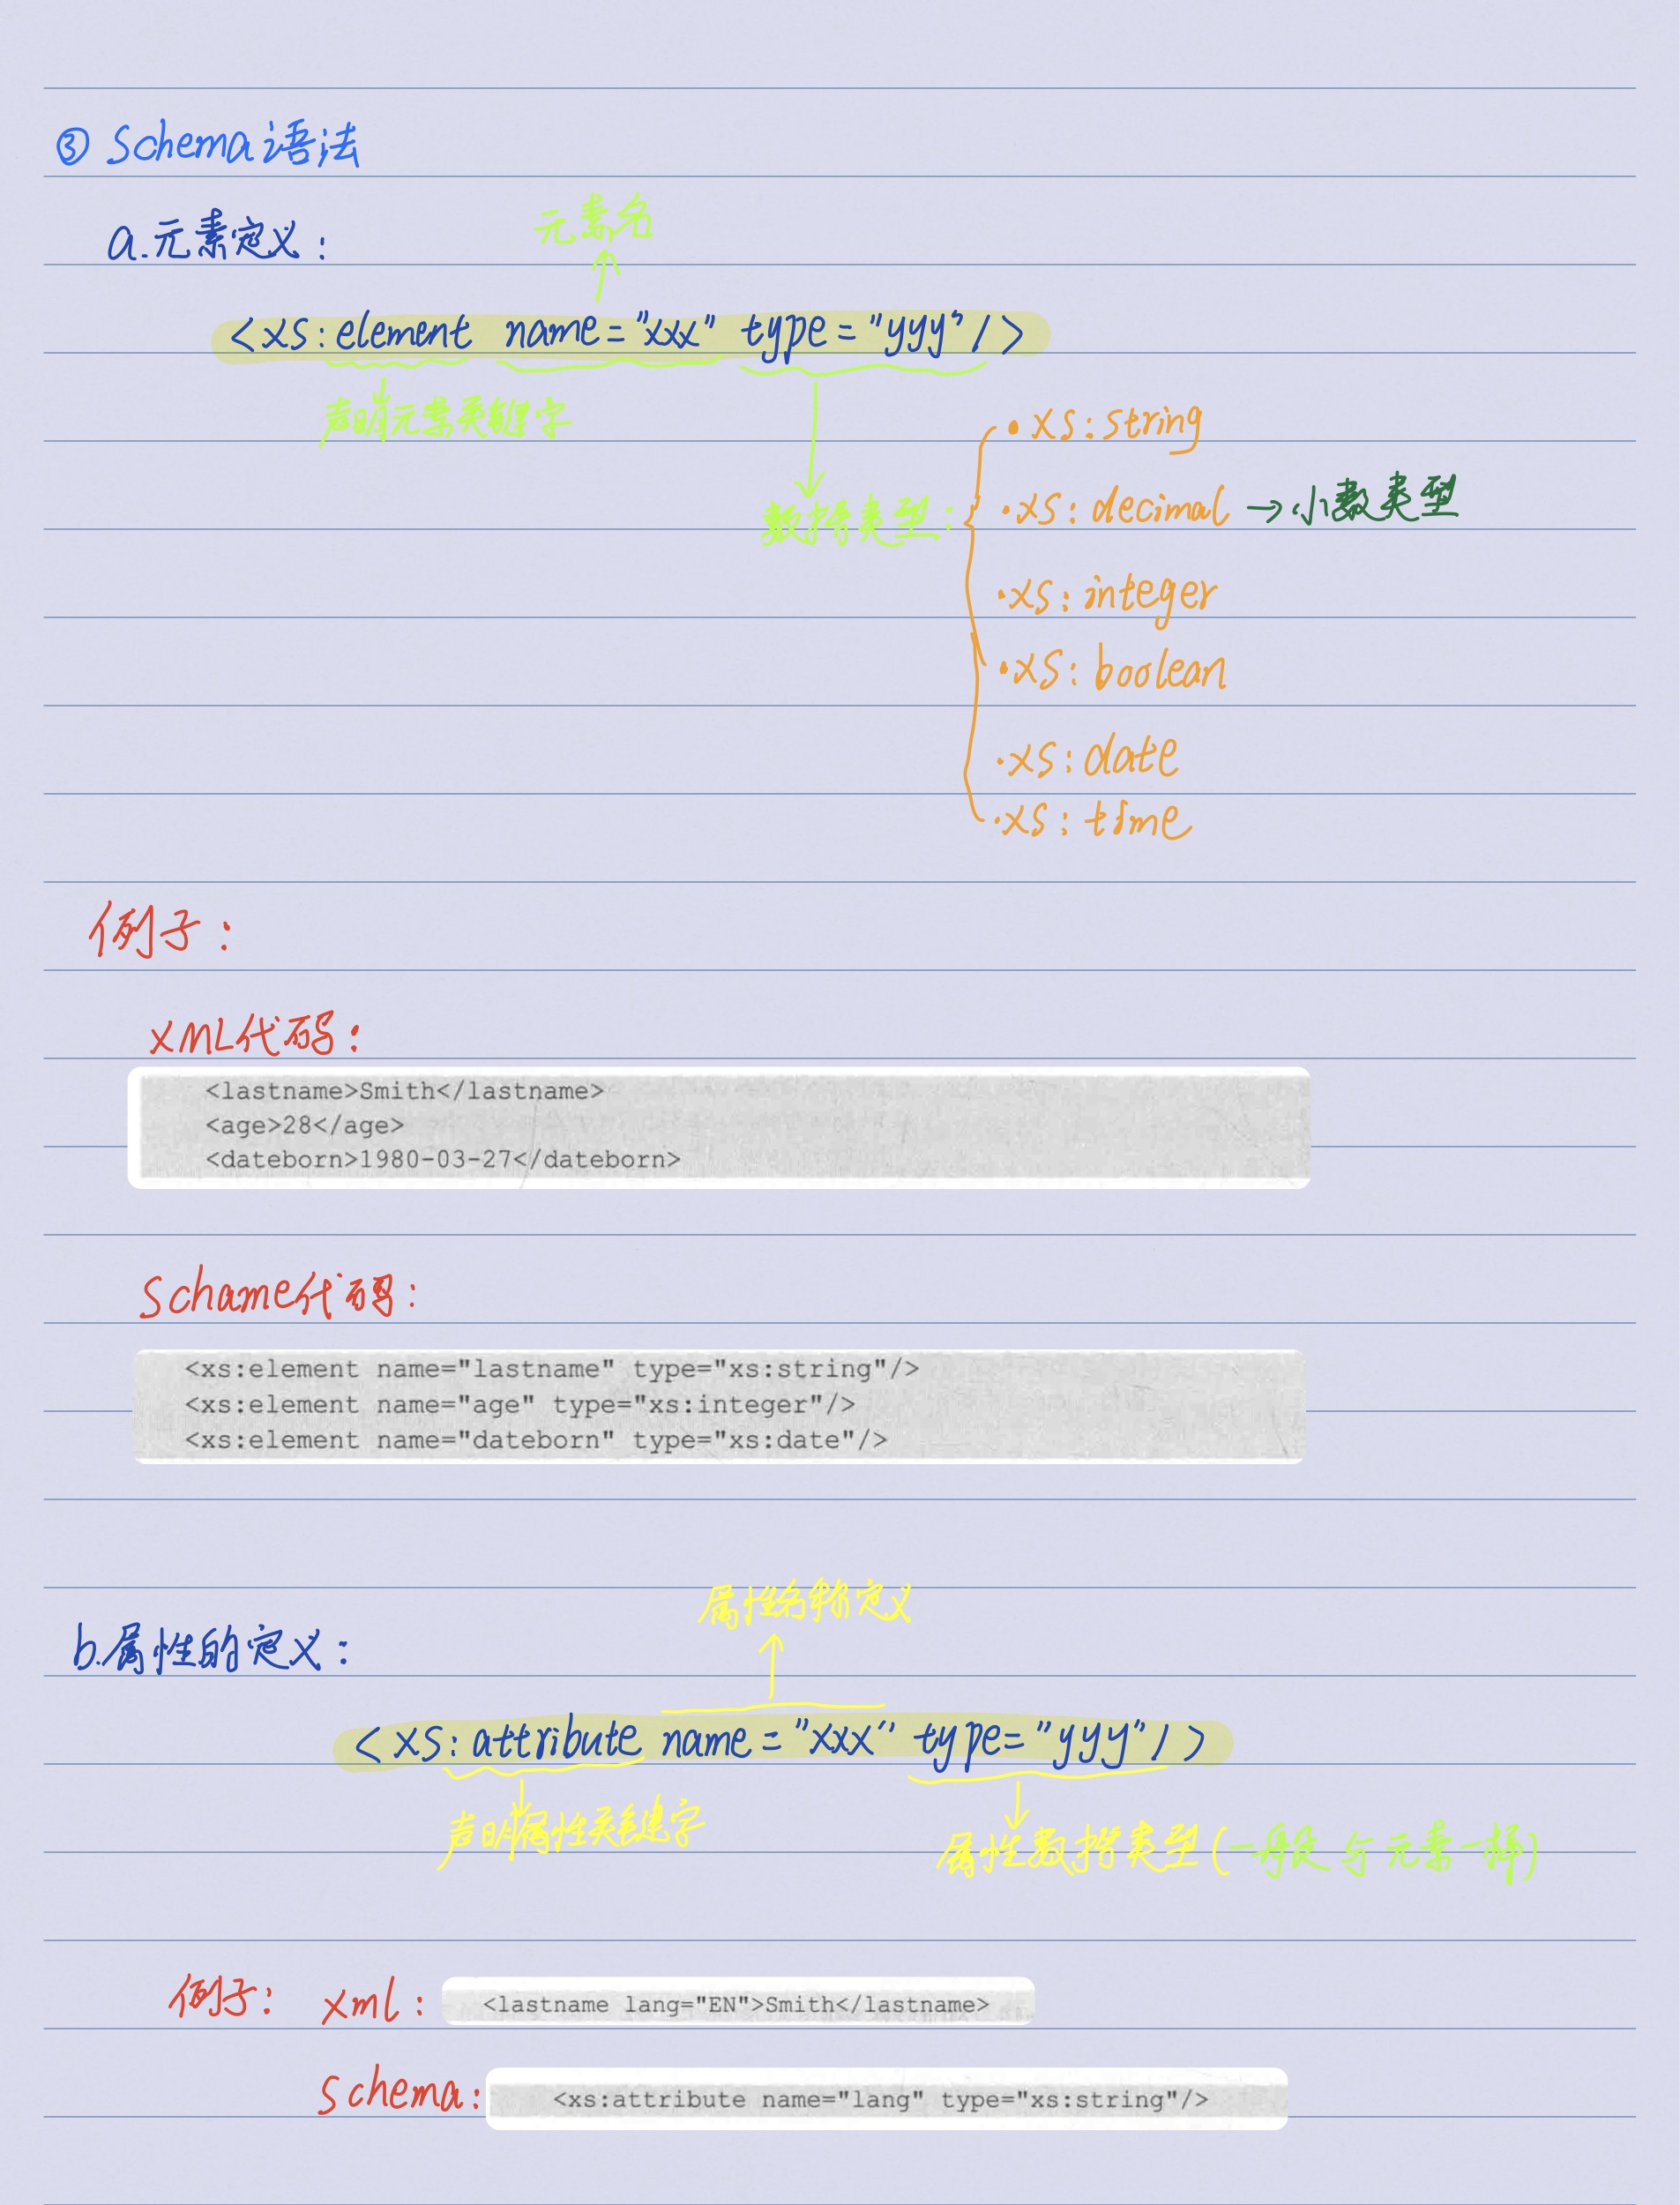 ③ Schema语法
a.元素定义：
元素名
<xs:element name="xxx" type="yyy"/>
声明元素关键字
数据类型：
·xs:string
·xs:decimal →小数类型
·xs:integer
·xs:boolean
·xs:date
·xs:time
例子：
XML代码：
<lastname>Smith</lastname>
<age>28</age>
<dateborn>1980-03-27</dateborn>
Schame代码：
<xs:element name="lastname" type="xs:string"/>
<xs:element name="age" type="xs:integer"/>
<xs:element name="dateborn" type="xs:date"/>
属性名称定义
b.属性的定义：
<xs:attribute name="xxx" type="yyy"/>
声明属性关键字
属性数据类型(一般与元素一样)
例子： xml：
<lastname lang="EN">Smith</lastname>
schema:
<xs:attribute name="lang" type="xs:string"/>